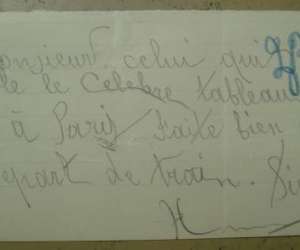 onjieur celui qui
le le Celebre tableau
à Paris faite bien
epart de train. Si